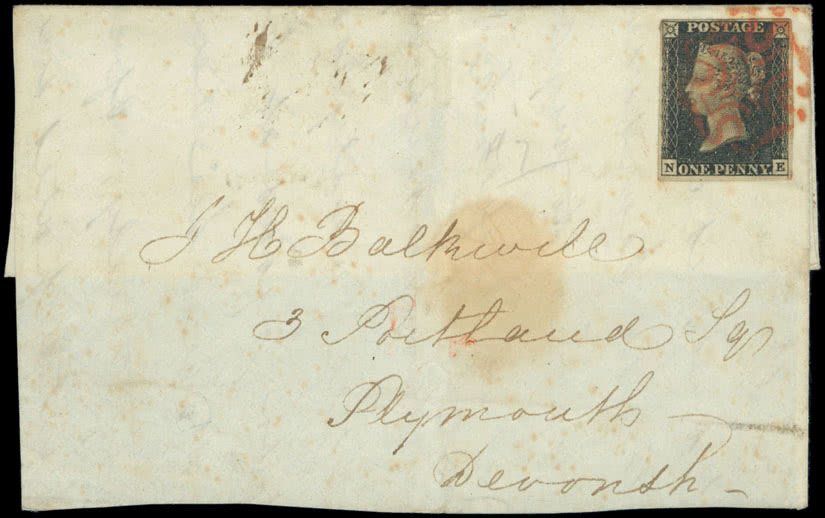 POSTAGE
N ONE PENNY E
A7
J H Balkwill
3 Portland Sq
Plymouth
Devonsh